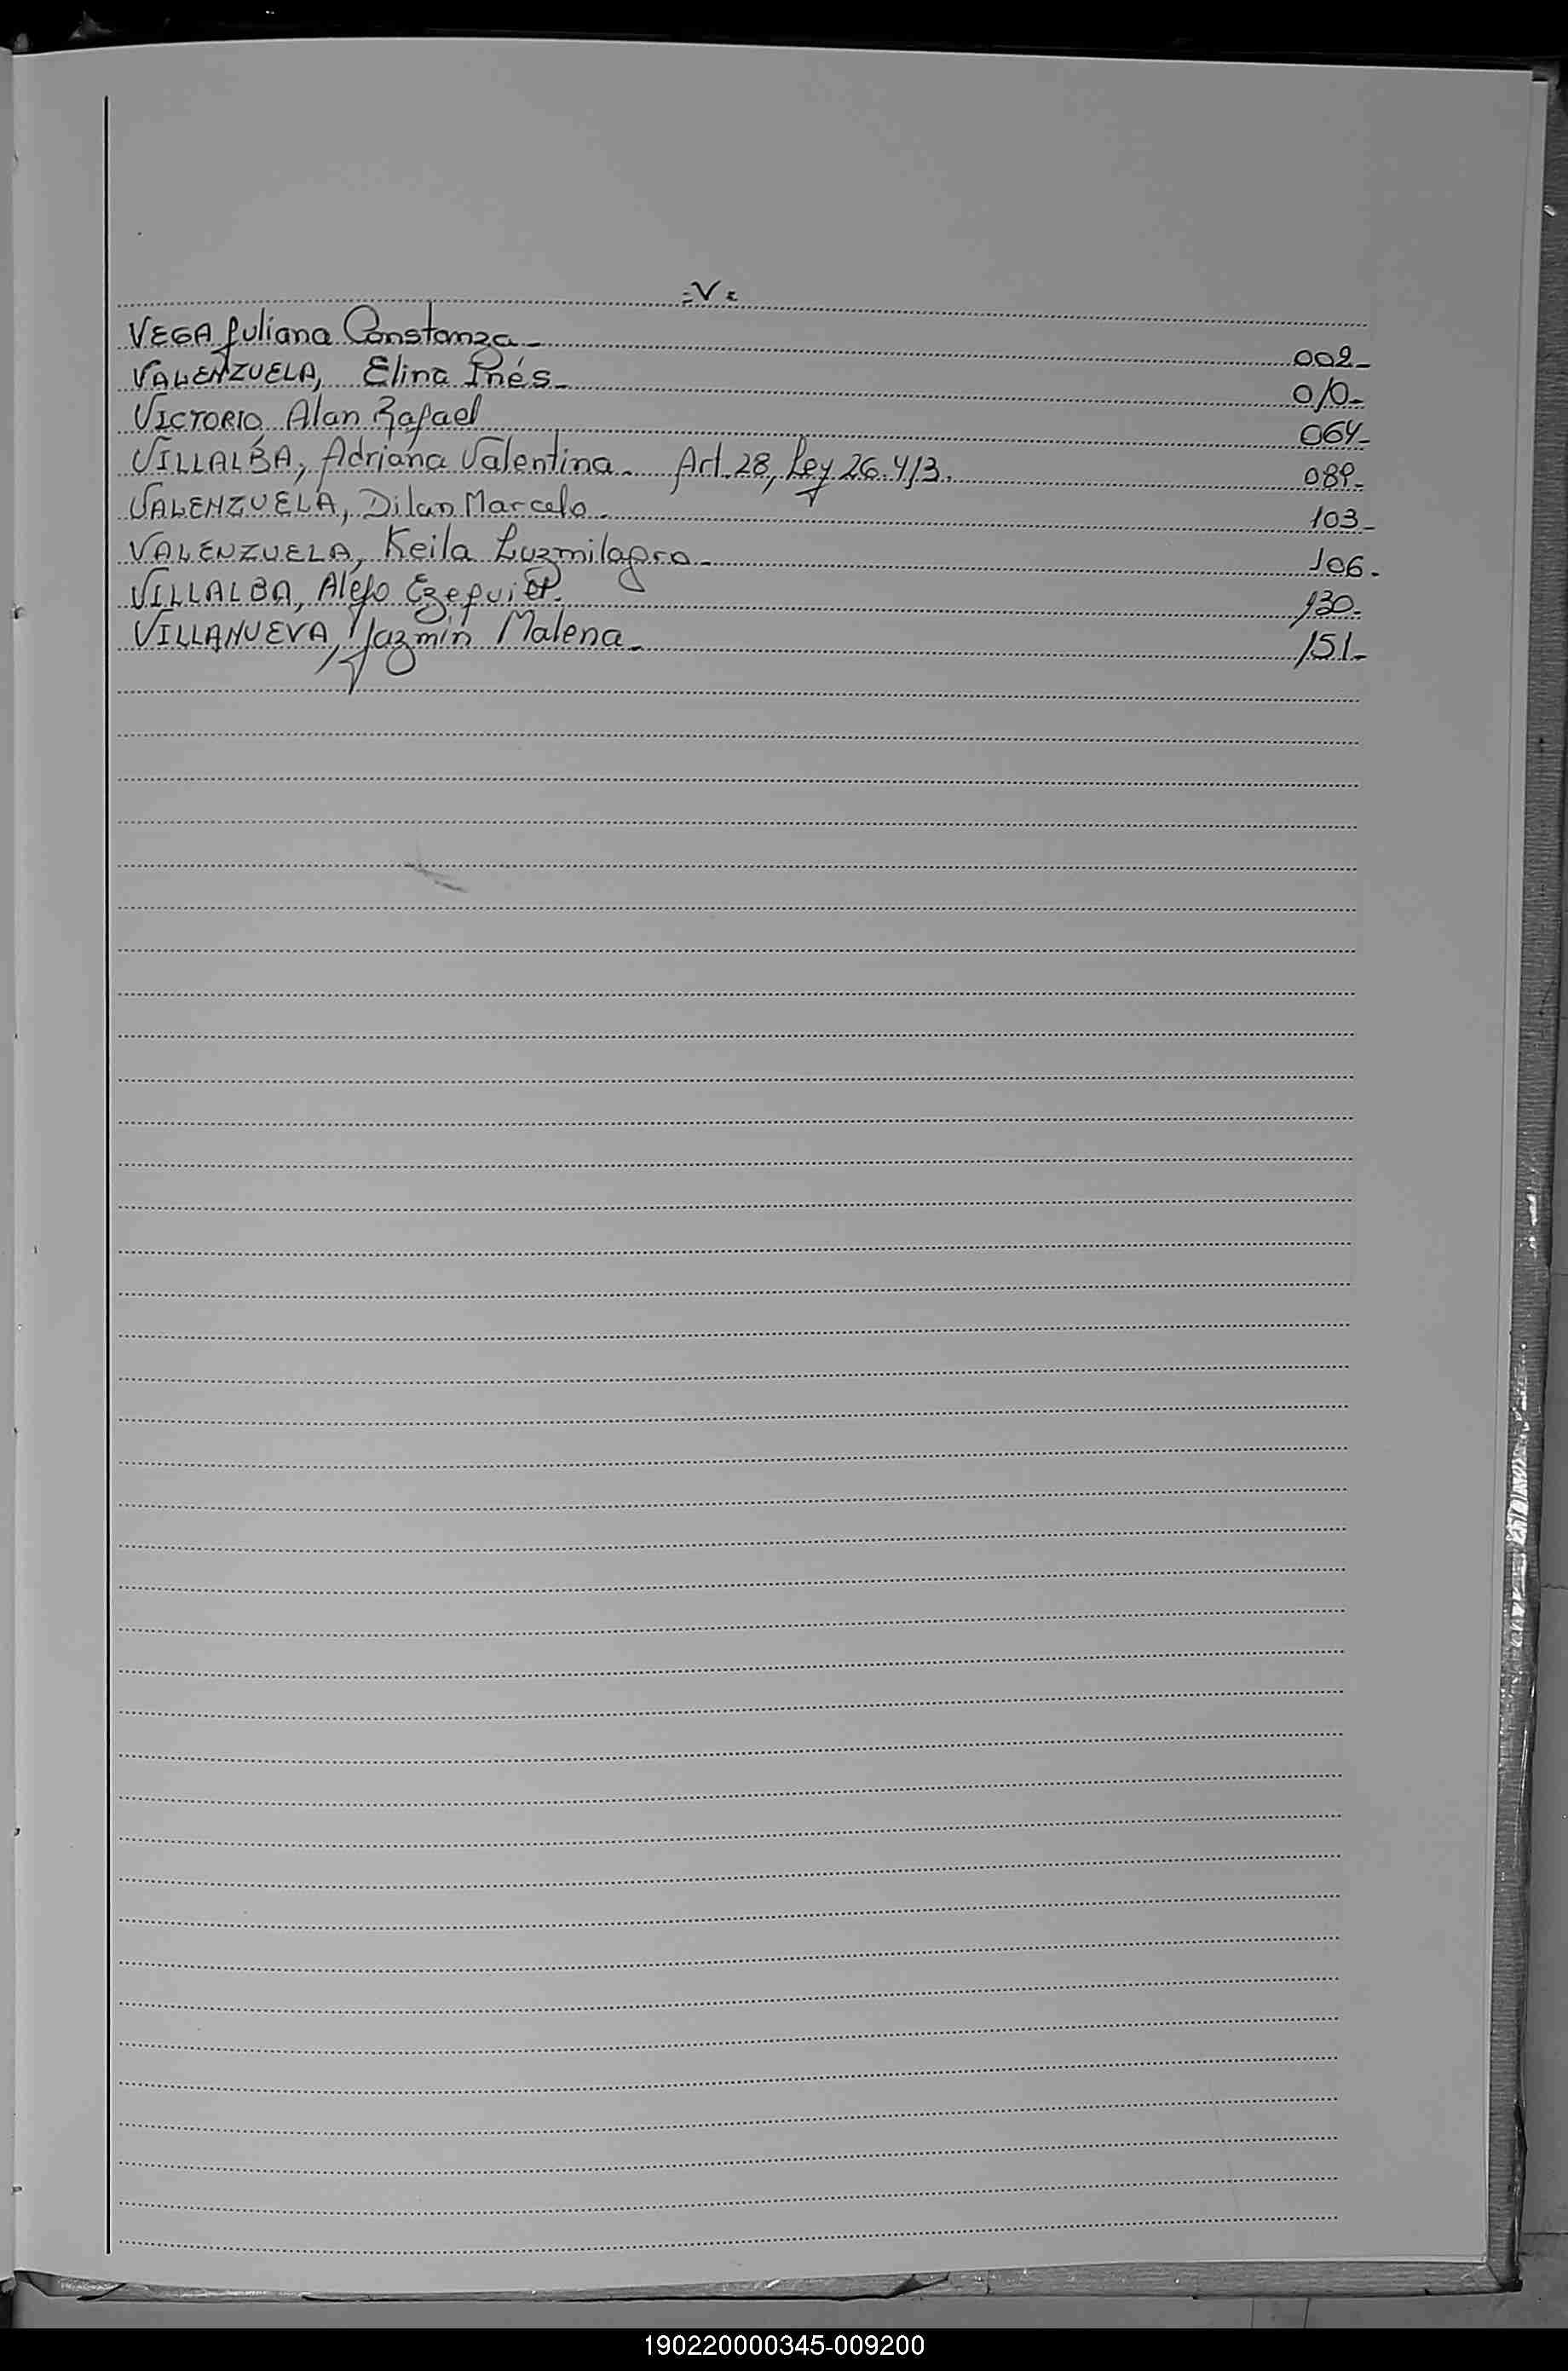 =V=
VEGA Juliana Constanza - 002-
VALENZUELA, Elina Inés - 010-
VICTORIO Alan Rafael 064-
VILLALBA, Adriana Valentina. Art. 28, Ley 26.413. 089-
VALENZUELA, Dilan Marcelo. 103-
VALENZUELA, Keila Luzmilagro - 106.
VILLALBA, Alejo Ezequiel. 130-
VILLANUEVA, Jazmín Malena. 151-
190220000345-009200